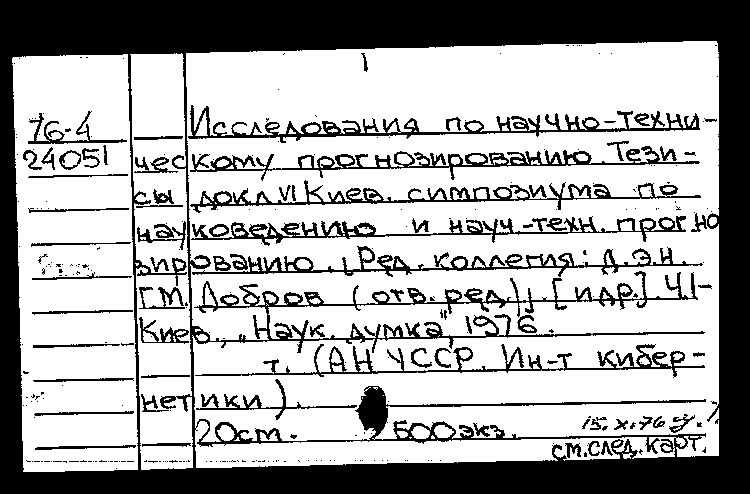 76-4
24051
Исследования по научно-техни-
ческому прогнозированию. Тези-
сы докл VI Киев. симпозиума по
науковедению и науч-техн. прогно
зированию. [Ред. коллегия: д.э.н.
Г.М. Добров (отв. ред.)]. [и др.]. Ч.1-
Киев., "Наук. думка", 1976.
т. (АН УССР. Ин-т кибер-
нетики).
20 ст. 500 экз. 15.X.76
см. след. карт.